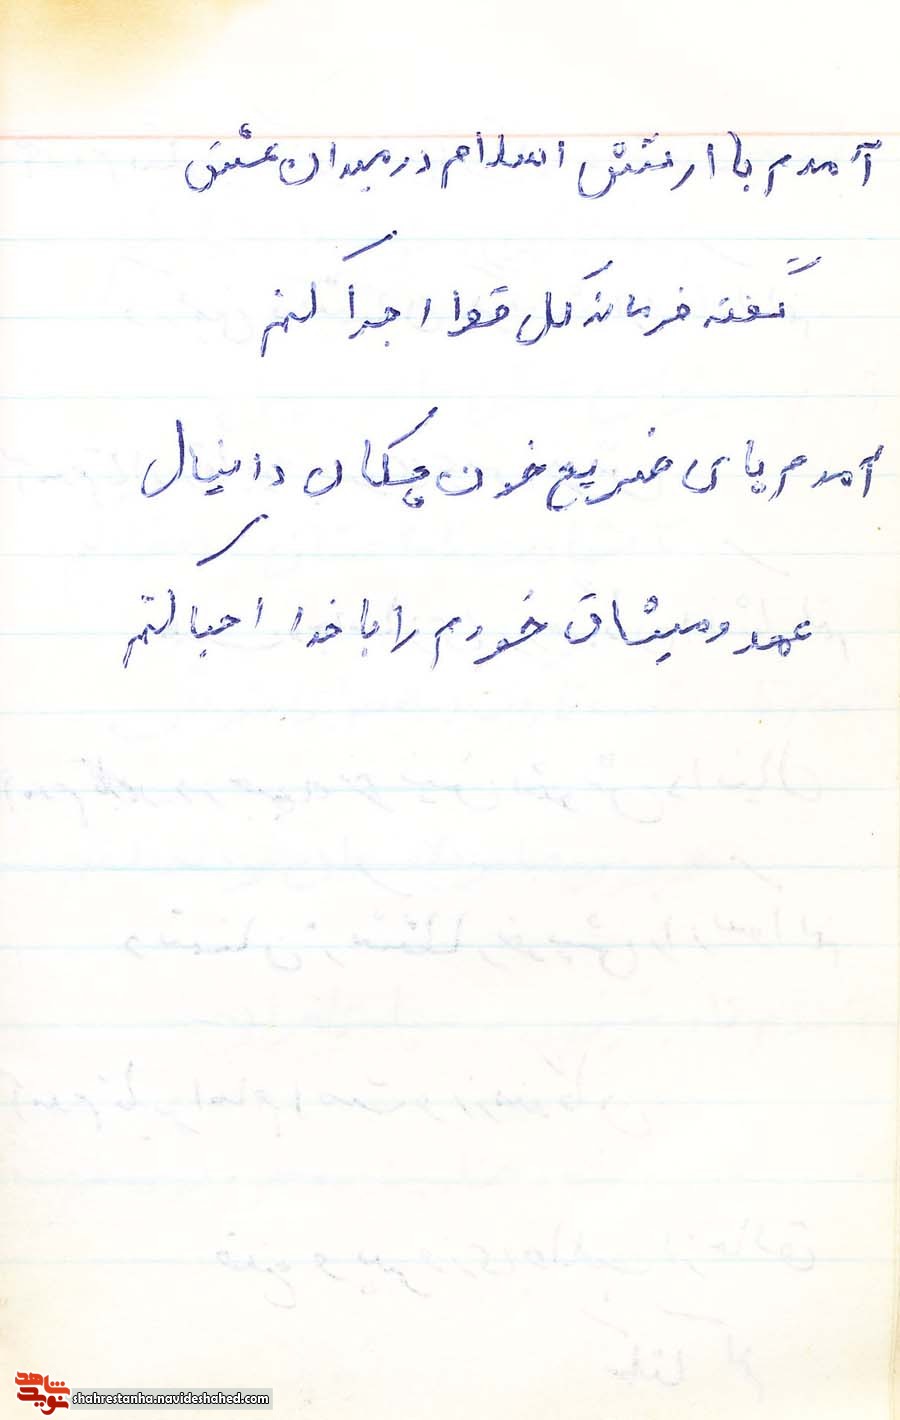 آمدم با ارتش اسلام در میدان عشق
گفته فرمانده کل قوا اجرا کنم
آمدم پای ضریح خون چکان دانیال
عهد و میثاق خودم را با خدا احیا کنم
نوید شاهد
shahrestanha.navideshahed.com